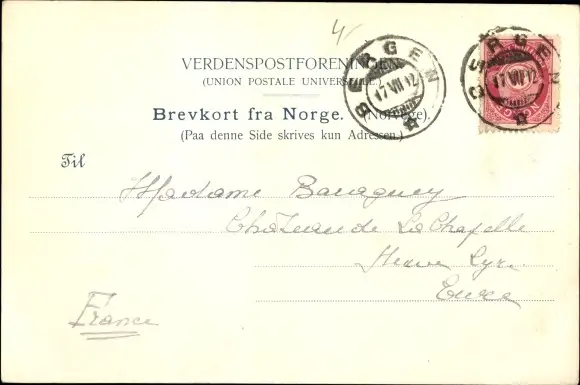 VERDENSPOSTFORENINGEN
(UNION POSTALE UNIVERSELLE.)
Brevkort fra Norge. (Norvège).
(Paa denne Side skrives kun Adressen.)
BERGEN
17 VII 12
BERGEN
17 VII 12
Til
Madame Baraguey
Château de La Chapelle
Neuve Lyre
Eure
France